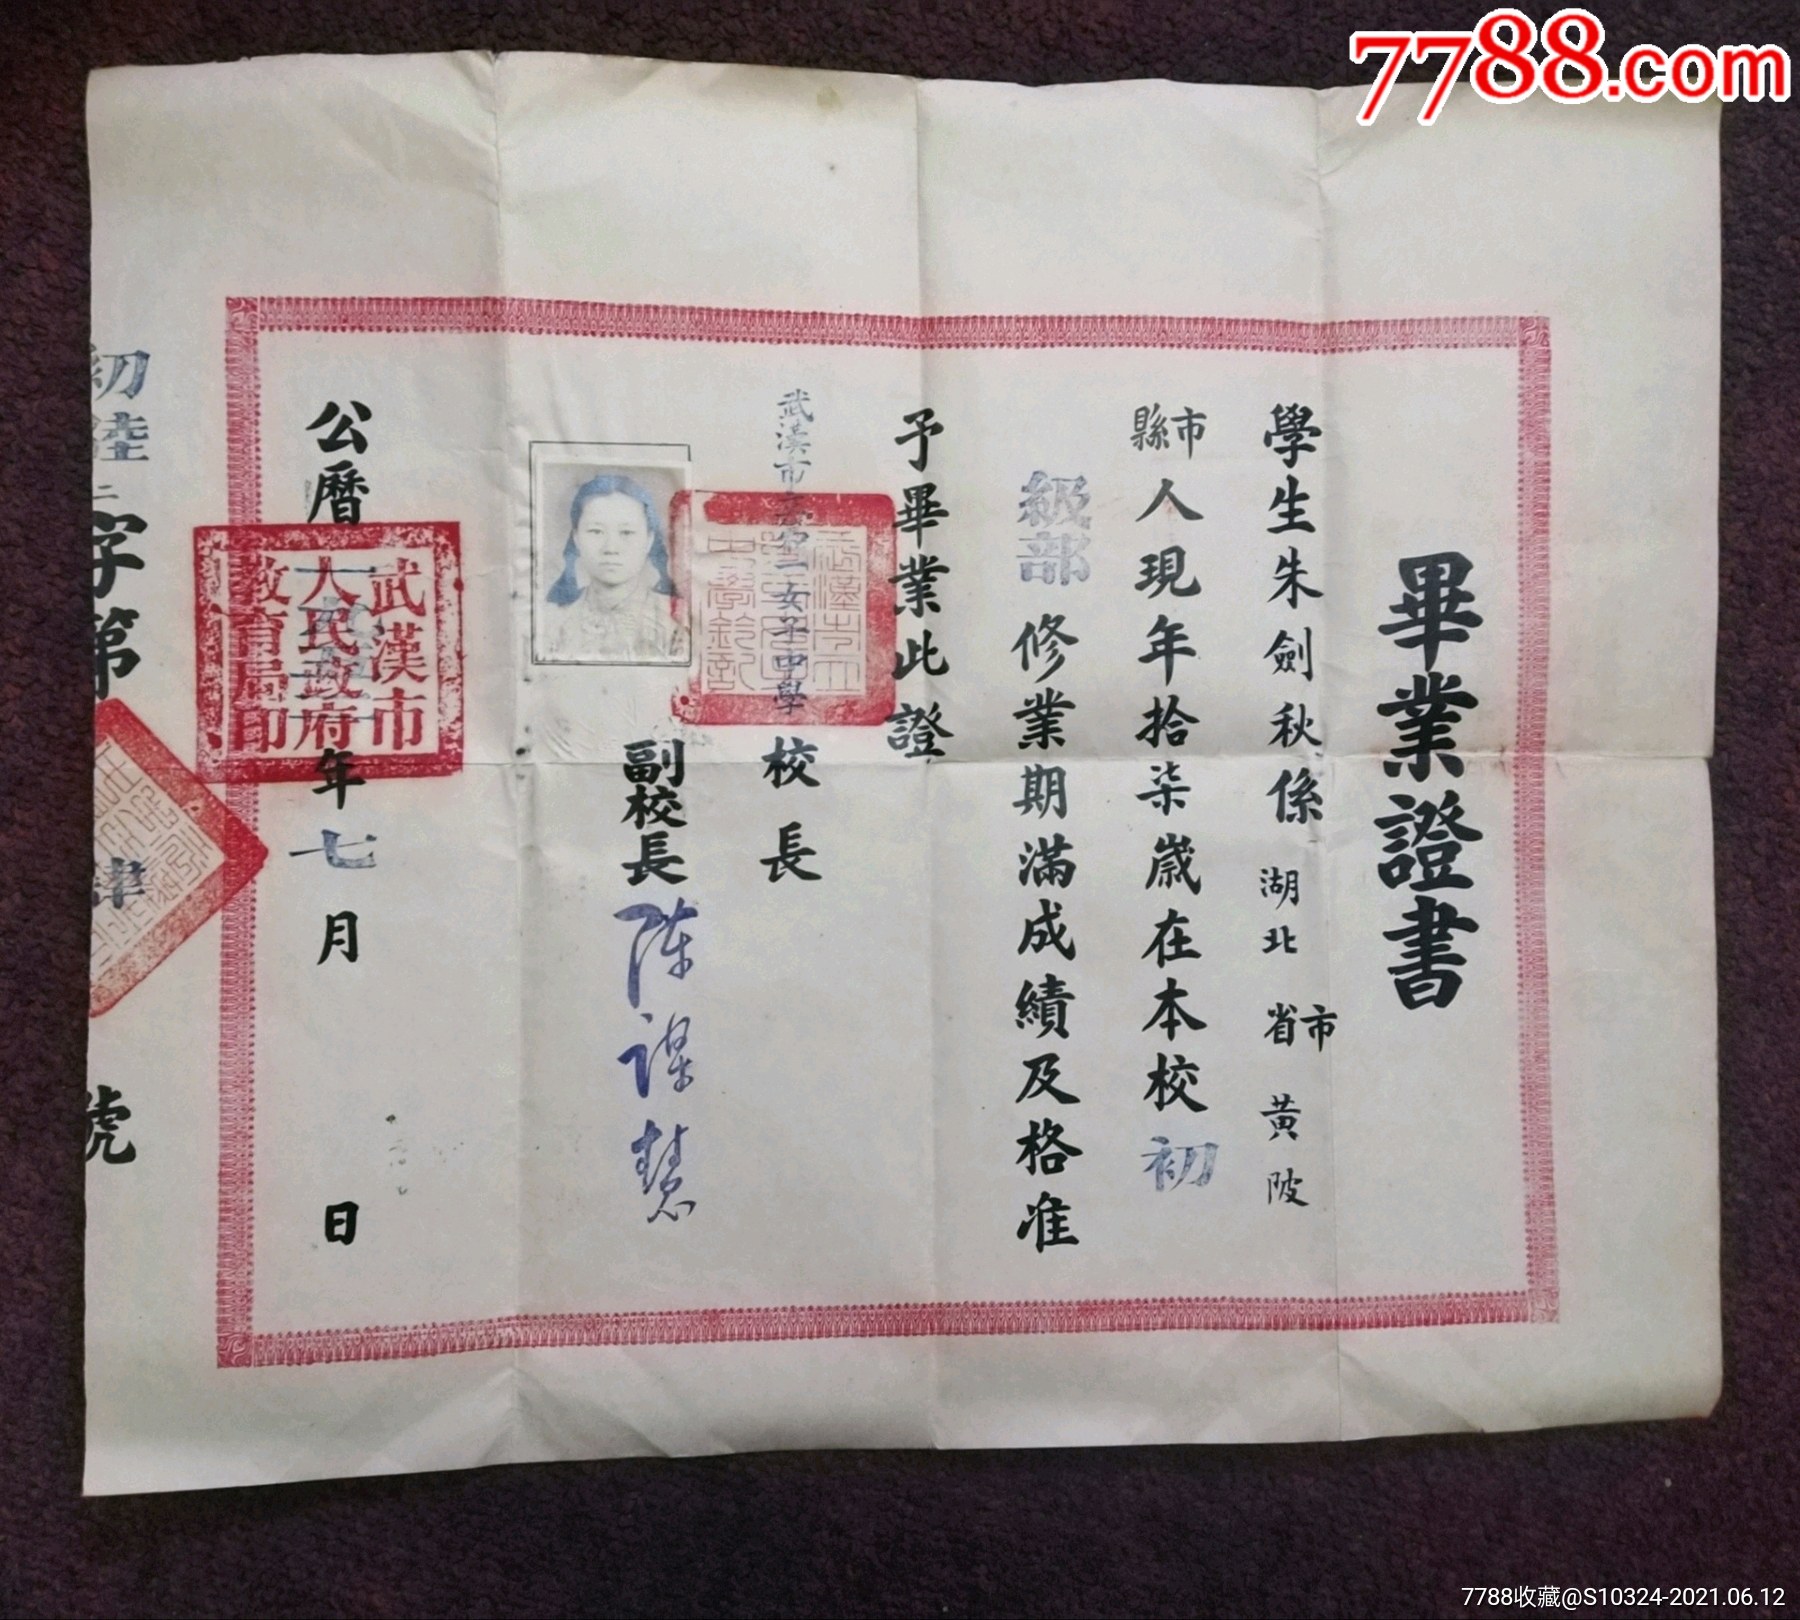 7788.com
畢業證書
學生朱劍秋係湖北省市黃陂
縣市人現年拾柒歲在本校初
級部修業期滿成績及格准
予畢業此證
武漢市立第二女子中學校長
副校長陈謀慧
公曆一九五 年七月 日
武漢市
人民政府
教育局印
初陸二字第 肆 號
7788收藏@S10324-2021.06.12